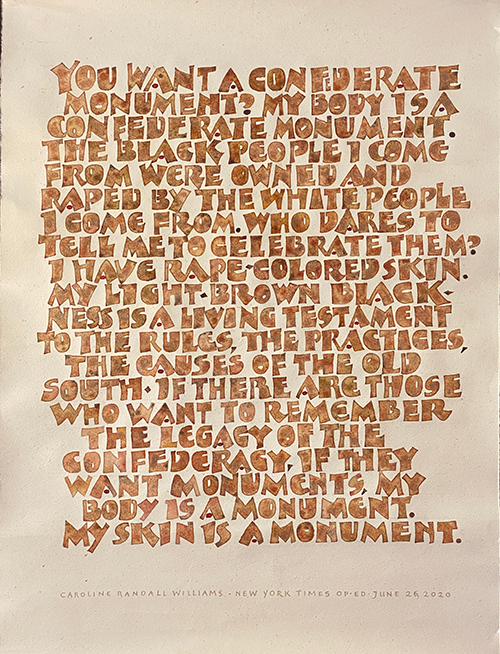 YOU WANT A CONFEDERATE
MONUMENT? MY BODY IS A
CONFEDERATE MONUMENT.
THE BLACK PEOPLE I COME
FROM WERE OWNED AND
RAPED BY THE WHITE PEOPLE
I COME FROM. WHO DARES TO
TELL ME TO CELEBRATE THEM?
I HAVE RAPE-COLORED SKIN.
MY LIGHT-BROWN BLACK-
NESS IS A LIVING TESTAMENT
TO THE RULES, THE PRACTICES,
THE CAUSES OF THE OLD
SOUTH. IF THERE ARE THOSE
WHO WANT TO REMEMBER
THE LEGACY OF THE
CONFEDERACY, IF THEY
WANT MONUMENTS, MY
BODY IS A MONUMENT.
MY SKIN IS A MONUMENT.
CAROLINE RANDALL WILLIAMS · NEW YORK TIMES OP·ED · JUNE 26, 2020